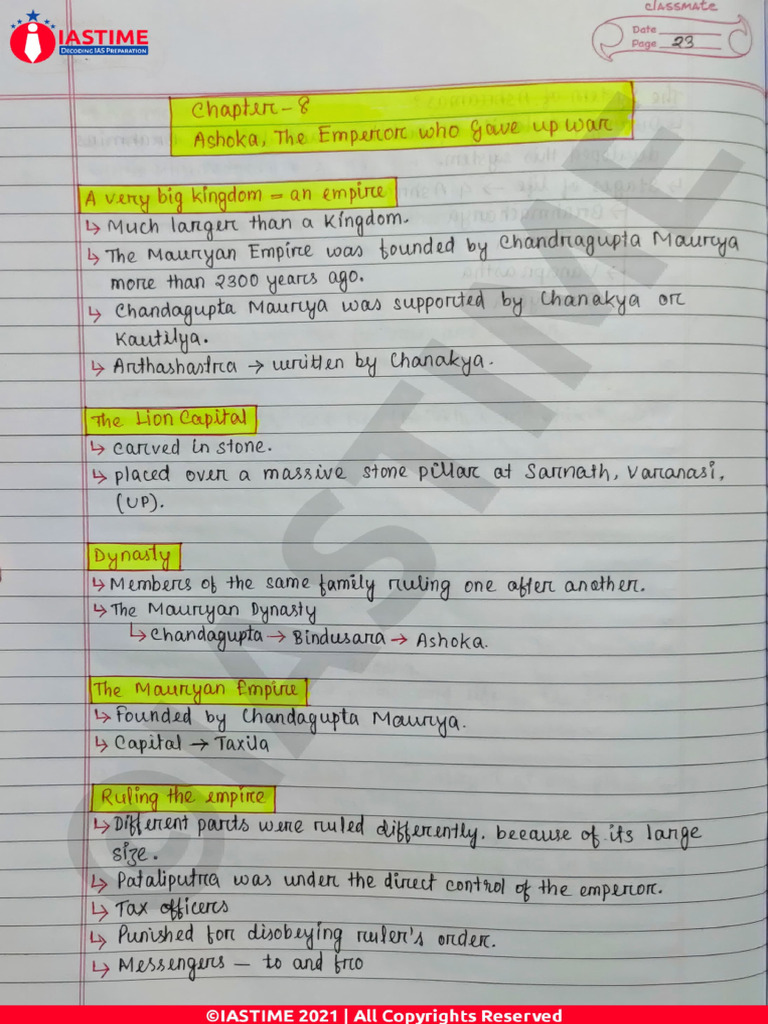 IASTIME
DECODING IAS PREPARATION
classmate
Date
Page 23
Chapter-8
Ashoka, The Emperor who gave up war
A very big kingdom = an empire
↳ Much larger than a Kingdom.
↳ The Mauryan Empire was founded by Chandragupta Maurya
more than 2300 years ago.
↳ Chandagupta Maurya was supported by Chanakya or
Kautilya.
↳ Arthashastra → written by Chanakya.
The Lion Capital
↳ carved in stone.
↳ placed over a massive stone pillar at Sarnath, Varanasi,
(UP).
Dynasty
↳ Members of the same family ruling one after another.
↳ The Mauryan Dynasty
↳ Chandagupta → Bindusara → Ashoka.
The Mauryan Empire
↳ Founded by Chandagupta Maurya.
↳ Capital → Taxila
Ruling the empire
↳ Different parts were ruled differently. because of its large
size.
↳ Pataliputra was under the direct control of the emperor.
↳ Tax officers
↳ Punished for disobeying ruler's order.
↳ Messengers — to and fro
©IASTIME
©IASTIME 2021 | All Copyrights Reserved